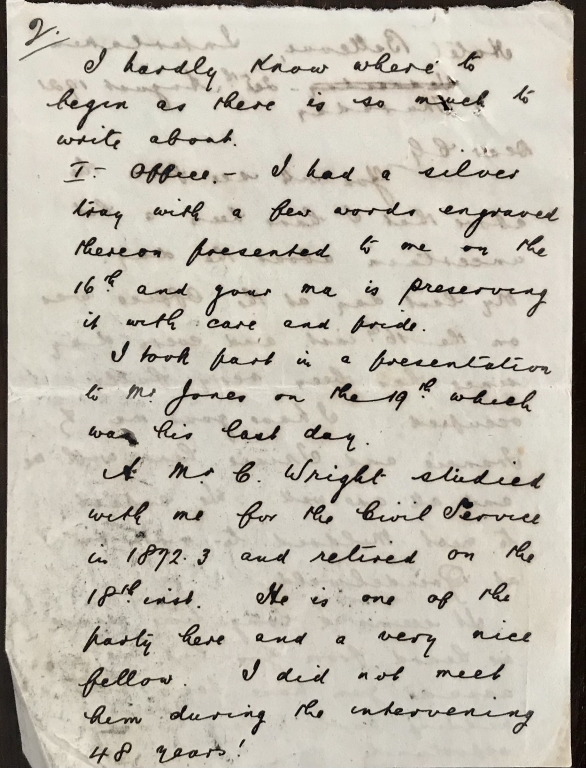 2.
I hardly know where to
begin as there is so much to
write about.
I - Office. - I had a silver
tray with a few words engraved
thereon presented to me on the
16th and your ma is preserving
it with care and pride.
I took part in a presentation
to Mr Jones on the 19th which
was his last day.
A Mr C. Wright studied
with me for the Civil Service
in 1872.3 and retired on the
18th inst. He is one of the
party here and a very nice
fellow. I did not meet
him during the intervening
48 years!